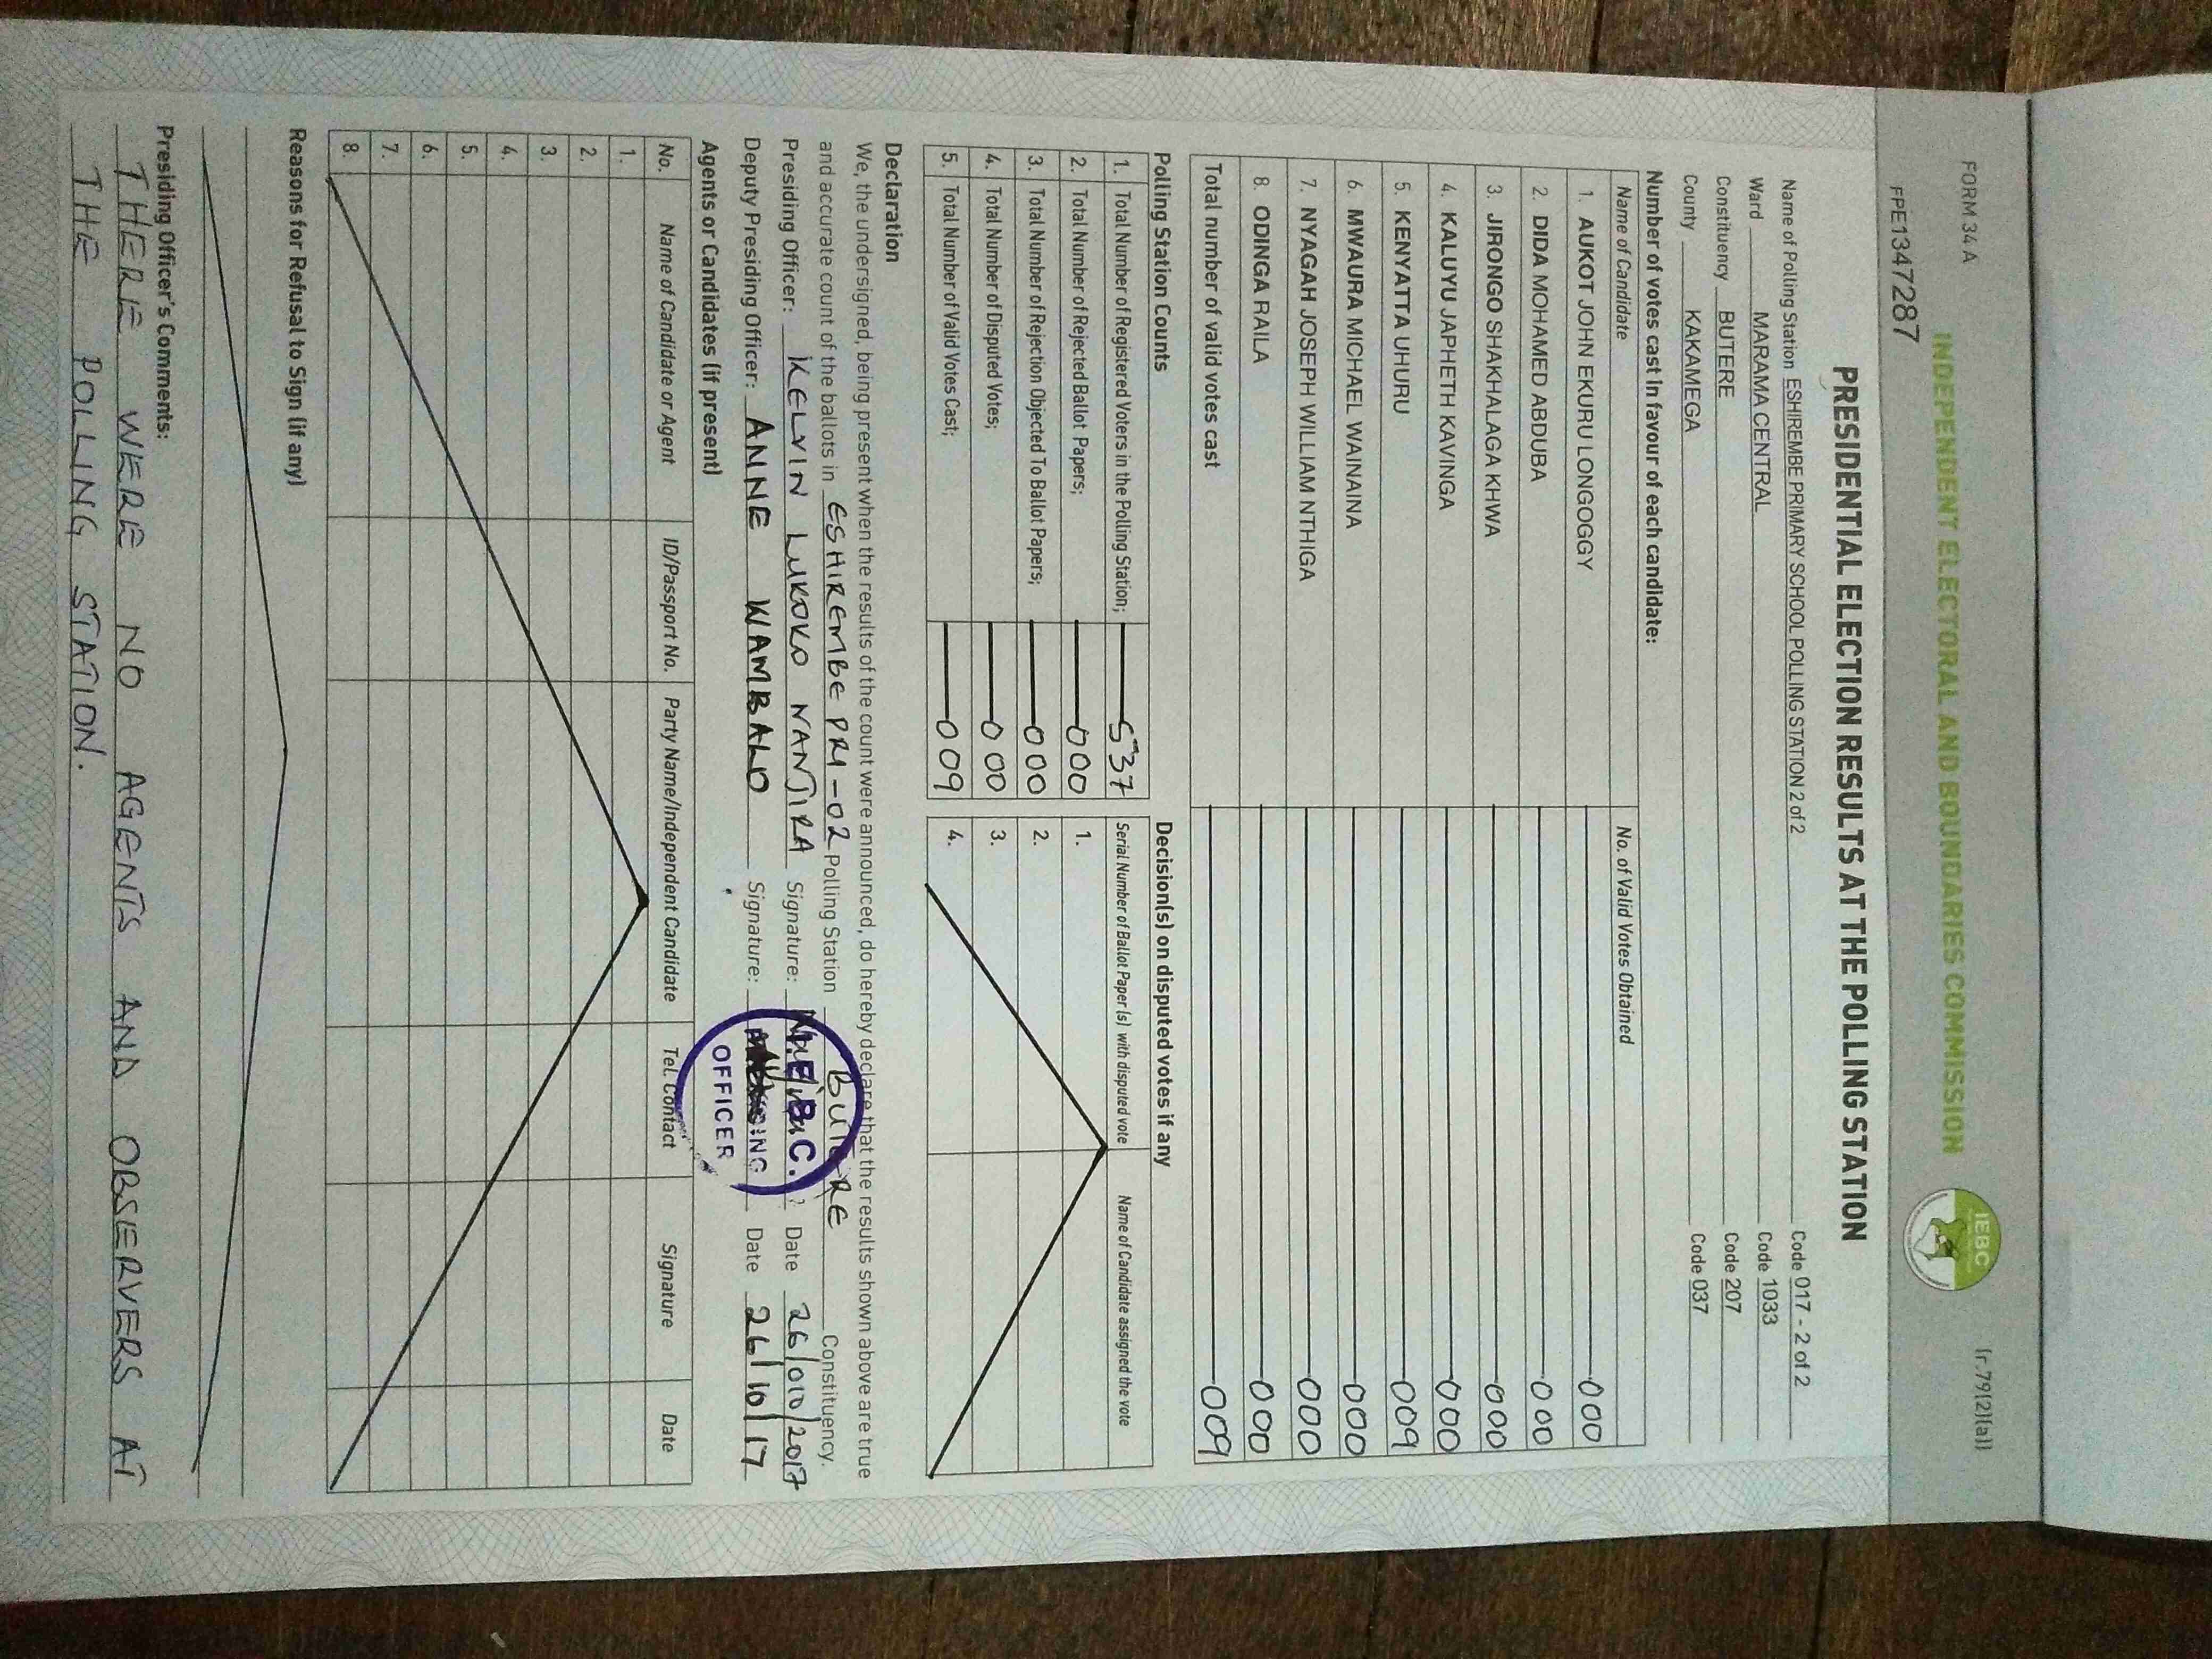 FORM 34 A
(r.79(2)(a))
INDEPENDENT ELECTORAL AND BOUNDARIES COMMISSION
IEBC
FPE1347287
PRESIDENTIAL ELECTION RESULTS AT THE POLLING STATION
Name of Polling Station ESHIREMBE PRIMARY SCHOOL POLLING STATION 2 of 2 Code 017 - 2 of 2
Ward MARAMA CENTRAL Code 1033
Constituency BUTERE Code 207
County KAKAMEGA Code 037
Number of votes cast in favour of each candidate:
Name of Candidate No. of Valid Votes Obtained
1. AUKOT JOHN EKURU LONGOGGY 000
2. DIDA MOHAMED ABDUBA 000
3. JIRONGO SHAKHALAGA KHWA 000
4. KALUYU JAPHETH KAVINGA 000
5. KENYATTA UHURU 009
6. MWAURA MICHAEL WAINAINA 000
7. NYAGAH JOSEPH WILLIAM NTHIGA 000
8. ODINGA RAILA 000
Total number of valid votes cast 009
Polling Station Counts
1. Total Number of Registered Voters in the Polling Station; 537
2. Total Number of Rejected Ballot Papers; 000
3. Total Number of Rejection Objected To Ballot Papers; 000
4. Total Number of Disputed Votes; 000
5. Total Number of Valid Votes Cast; 009
Decision(s) on disputed votes if any
Serial Number of Ballot Paper (s) with disputed vote Name of Candidate assigned the vote
1.
2.
3.
4.
Declaration
We, the undersigned, being present when the results of the count were announced, do hereby declare that the results shown above are true
and accurate count of the ballots in ESHIREMBE PRI-02 Polling Station BUTERE Constituency.
Presiding Officer: KELVIN LUKOKO NANJIRA Signature: Date 26/010/2017
Deputy Presiding Officer: ANNE WAMBALO Signature: Date 26/10/17
I.E.B.C.
OFFICER
Agents or Candidates (if present)
No. Name of Candidate or Agent ID/Passport No. Party Name/Independent Candidate Tel. Contact Signature Date
1.
2.
3.
4.
5.
6.
7.
8.
Reasons for Refusal to Sign (if any)
Presiding Officer's Comments:
THERE WERE NO AGENTS AND OBSERVERS AT
THE POLLING STATION.